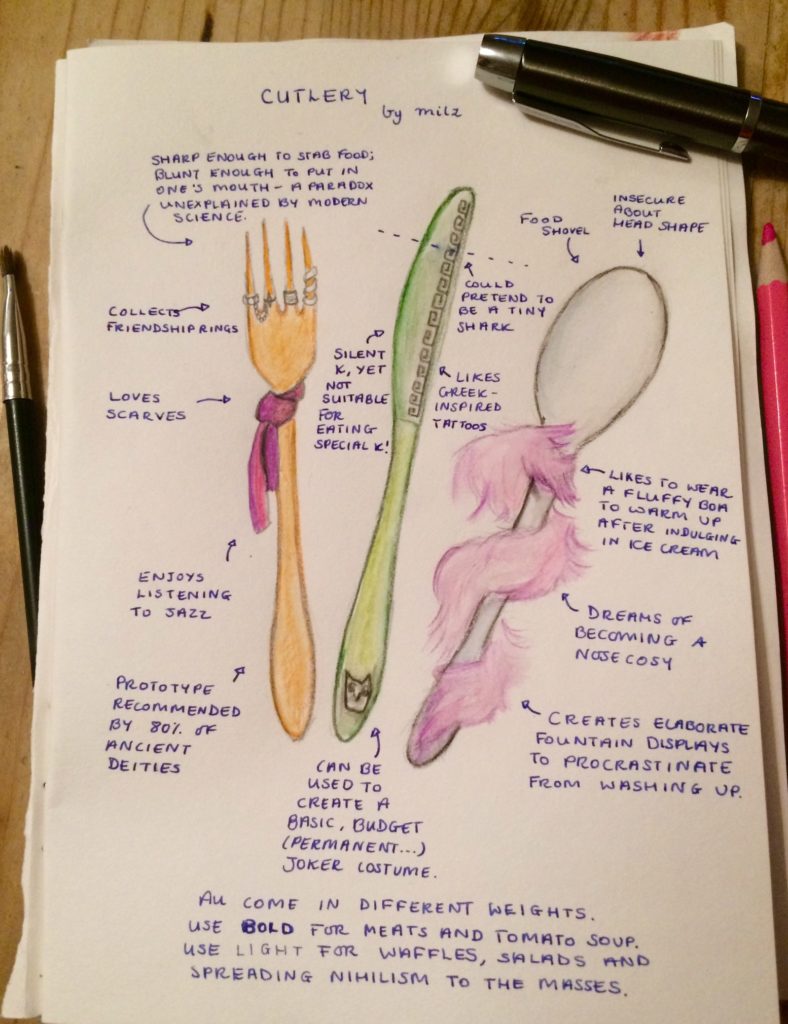 CUTLERY
by milz
SHARP ENOUGH TO STAB FOOD;
BLUNT ENOUGH TO PUT IN
ONE'S MOUTH - A PARADOX
UNEXPLAINED BY MODERN
SCIENCE.
COLLECTS
FRIENDSHIP RINGS
LOVES
SCARVES
ENJOYS
LISTENING
TO JAZZ
PROTOTYPE
RECOMMENDED
BY 80% OF
ANCIENT
DEITIES
SILENT
K, YET
NOT
SUITABLE
FOR
EATING
SPECIAL K!
COULD
PRETEND TO
BE A TINY
SHARK
LIKES
GREEK-
INSPIRED
TATTOOS
CAN BE
USED TO
CREATE A
BASIC, BUDGET
(PERMANENT...)
JOKER COSTUME.
FOOD
SHOVEL
INSECURE
ABOUT
HEAD SHAPE
LIKES TO WEAR
A FLUFFY BOA
TO WARM UP
AFTER INDULGING
IN ICE CREAM
DREAMS OF
BECOMING A
NOSE COSY
CREATES ELABORATE
FOUNTAIN DISPLAYS
TO PROCRASTINATE
FROM WASHING UP.
ALL COME IN DIFFERENT WEIGHTS.
USE BOLD FOR MEATS AND TOMATO SOUP.
USE LIGHT FOR WAFFLES, SALADS AND
SPREADING NIHILISM TO THE MASSES.